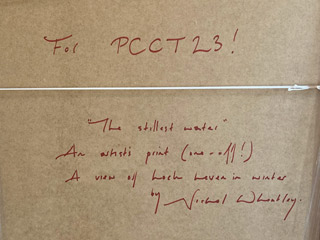 For PCCT23!
"The stillest water"
An artist's print (one-off!)
A view of Loch Leven in winter
by Wheatley.